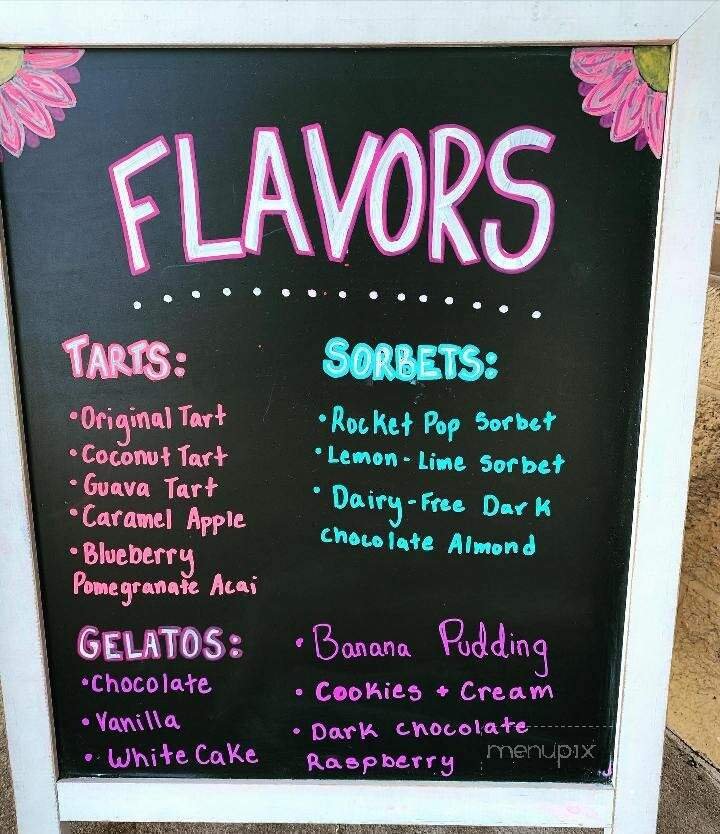 FLAVORS
TARTS:
•Original Tart
•Coconut Tart
•Guava Tart
•Caramel Apple
•Blueberry
Pomegranate Acai
SORBETS:
•Rocket Pop Sorbet
•Lemon-Lime Sorbet
•Dairy-Free Dark
chocolate Almond
GELATOS:
•Chocolate
•Vanilla
•White Cake
•Banana Pudding
•Cookies + Cream
•Dark chocolate
Raspberry
menupix